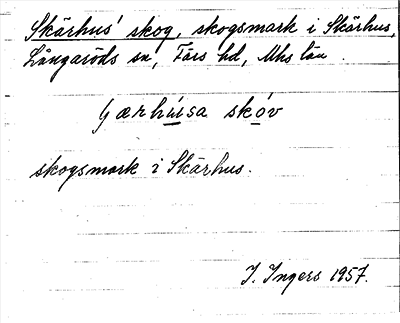 Skärhus' skog, skogsmark i Skärhus,
Långaröds sn, Färs hd, Mhs län.
gærhúsa skóv
skogsmark i Skärhus.
I. Ingers 1957.